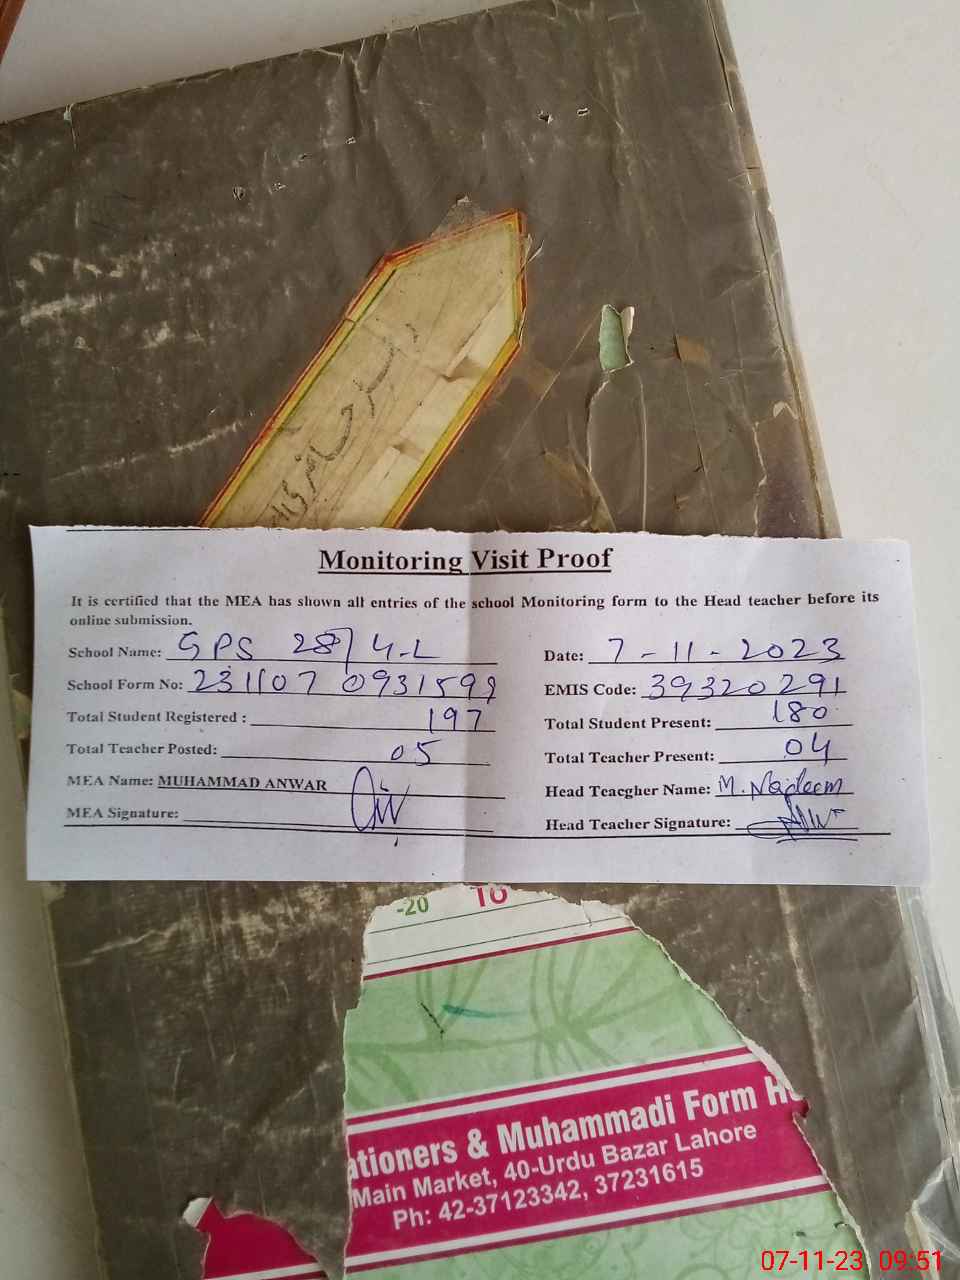 Monitoring Visit Proof
It is certified that the MEA has shown all entries of the school Monitoring form to the Head teacher before its
online submission.
School Name: GPS 28/4-L
Date: 7-11-2023
School Form No: 231107 0931599
EMIS Code: 39320291
Total Student Registered : 197
Total Student Present: 180
Total Teacher Posted: 05
Total Teacher Present: 04
MEA Name: MUHAMMAD ANWAR
Head Teacgher Name: M. Nadeem
MEA Signature:
Head Teacher Signature:
-20 10
ationers & Muhammadi Form H
Main Market, 40-Urdu Bazar Lahore
Ph: 42-37123342, 37231615
07-11-23 09:51